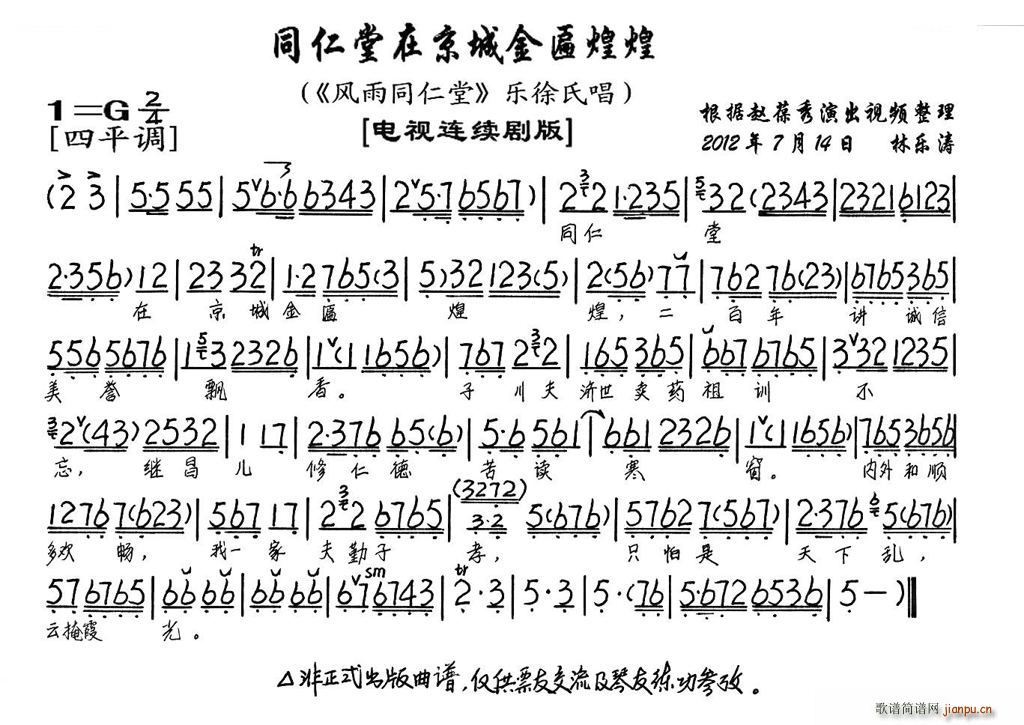 同仁堂在京城金匾煌煌
(《风雨同仁堂》乐徐氏唱)
1=G 2/4
[四平调]
[电视连续剧版]
根据赵葆秀演出视频整理
2012年7月14日 林乐涛
(2 3 | 5·5 55 | 5 6·6 6343 | 2 5·7 6567) | 2 3 2 1·235 | 5 32 (2343 | 2321 6123 |
同仁 堂
2·356) 12 | 23 32 | 1·2 765(3 | 5)32 123(5) | 2(56) 77 | 762 76(23) | 6765 365 |
在 京城金匾 煌 煌,二 百年 讲诚信
556 5676 | 1 5 3 2326 | 1(1 1656) | 767 2 3 2 | 165 365 | 667 6765 | 3 32 1235 |
美誉 飘 香。 子川夫济世卖药祖训 不
3 2(43) 2532 | 1 17 | 2·376 65(6) | 5·6 561 | 661 2326 | 1(1 1656) | 765 3656 |
忘,继昌儿 修仁德 苦读 寒 窗。 内外和顺
1276 7(623) | 567 17 | 2 3 2 6765 | (3272) 3·2 5(676) | 5762 7(567) | 2·376 6 5(676) |
多欢 畅, 我一家 夫勤子 孝, 只怕是 天下乱,
57 6765 | 66 66 | 66 66 | 67 sm 6743 | tr 2·3 | 5·3 | 5·(76 | 5·672 6536 | 5 — ) ‖
云掩霞 光。
△非正式出版曲谱,仅供票友交流及琴友练功参考。
歌谱简谱网
jianpu.cn